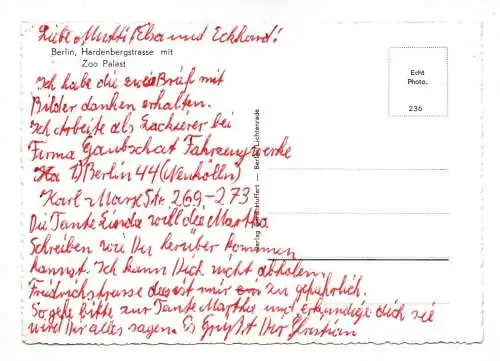 Liebe Mutti Elsa und Eckhard!
Berlin, Hardenbergstrasse mit
Zoo Palast
Ich habe die zwei Brief mit
Bilder danken erhalten.
Ich Arbeite als Lackierer bei
Firma Gaubschat Fahrzeugwerke
1) Berlin 44 (Neukölln)
Karl-Marx Str. 269-273
Die Tante Linda will die Martha
Schreiben wie Du herüber kommen
kannst. Ich kann Dich nicht abholen.
Friedrichstrasse das ist mir zu gefährlich.
So gehe bitte zur Tante Martha und erkundige dich sie
wird Dir alles sagen. Es Grüßt Dir Christian
Echt
Photo.
236
Verlag Huffert — Berlin-Lichtenrade